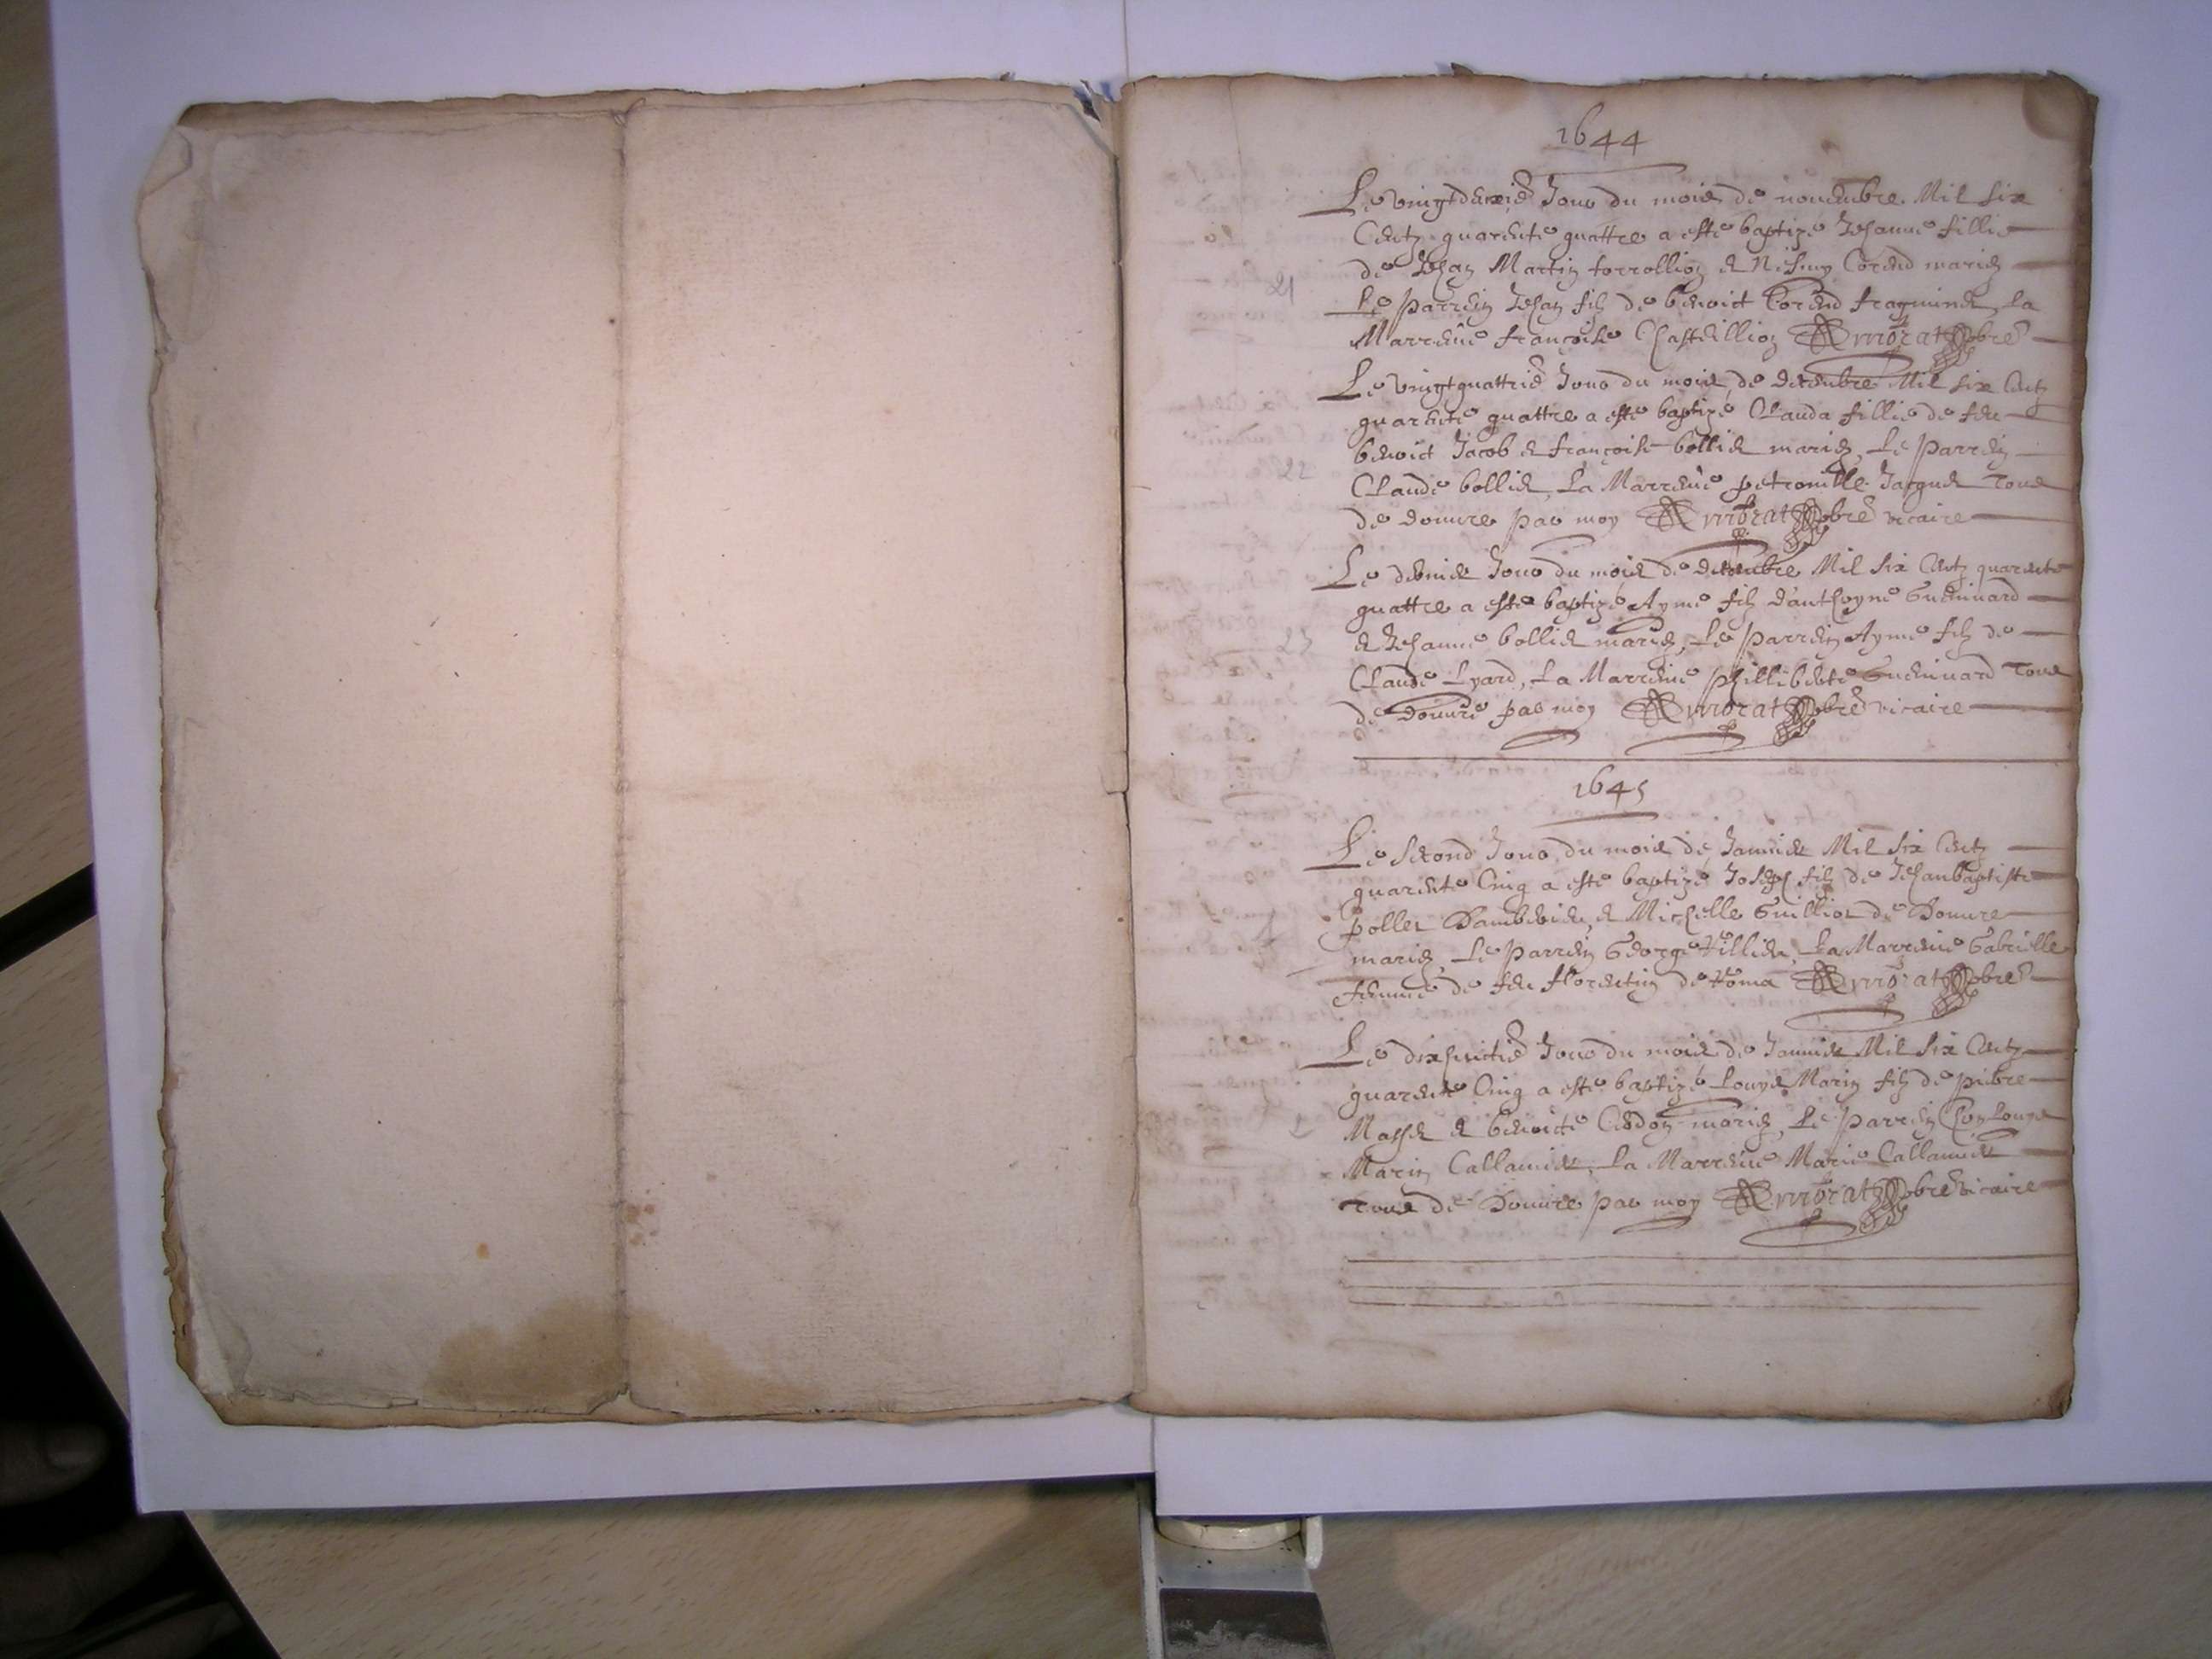 1644
Le vingtdeuxie Jour du mois de nouembre Mil six
Centz quarente quattre a este baptizé Jehanne fillie
de Jehan Martin torrollion et Corend mariez
Le Parrein Jehan filz de benoict Corend La
Marreine françoise Chasteillion pbre
Le vingtquattrie Jour du mois de decembre Mil six Centz
quarente quattre a este baptizé Clauda fillie de feu
benoict Jacob et françoise bollier mariez, Le Parrein
Claude bollier, La Marreine petronille Jacquet Tous
de Douure par moy pbre vicaire
Le dernier Jour du mois de decembre Mil six Centz quarente
quattre a este baptizé Ayme filz d'anthoyne Guennard
et Jehanne bollier mariez, Le Parrein Ayme filz de
Claude Lyard, La Marreine philliberte Guennard Tous
de Douure par moy pbre vicaire
1645
Le second Jour du mois de Januier Mil six Centz
quarente Cinq a este baptizé Joseph filz de Jehanbaptiste
pollet et Michelle Guilliot de Douure
mariez, Le Parrein George Tillier, La Marreine Gabrielle
femme de feu florentin de Roma pbre
Le dixhuictie Jour du mois de Januier Mil six Centz
quarente Cinq a este baptizé Louys Marin filz de pierre
Masset et benoicte Cerdon mariez, Le Parrein Louys
Marin Callamier, La Marreine Marie Callamier
Tous de Douure par moy pbre vicaire